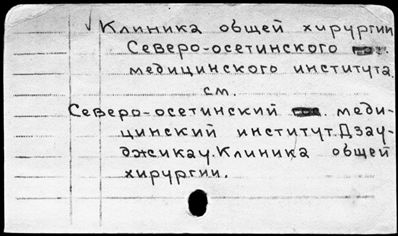 Клиника общей хирургии
Северо-осетинского
медицинского института.
см.
Северо-осетинский меди-
цинский институт. Дзау-
джикау. Клиника общей
хирургии.